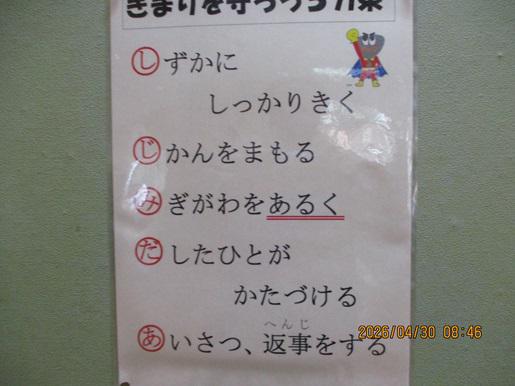 きまりを守ろう5カ条
しずかに
しっかりきく
じかんをまもる
みぎがわをあるく
だしたひとが
かたづける
あいさつ、返事をする
へんじ
2026/04/30 08:46